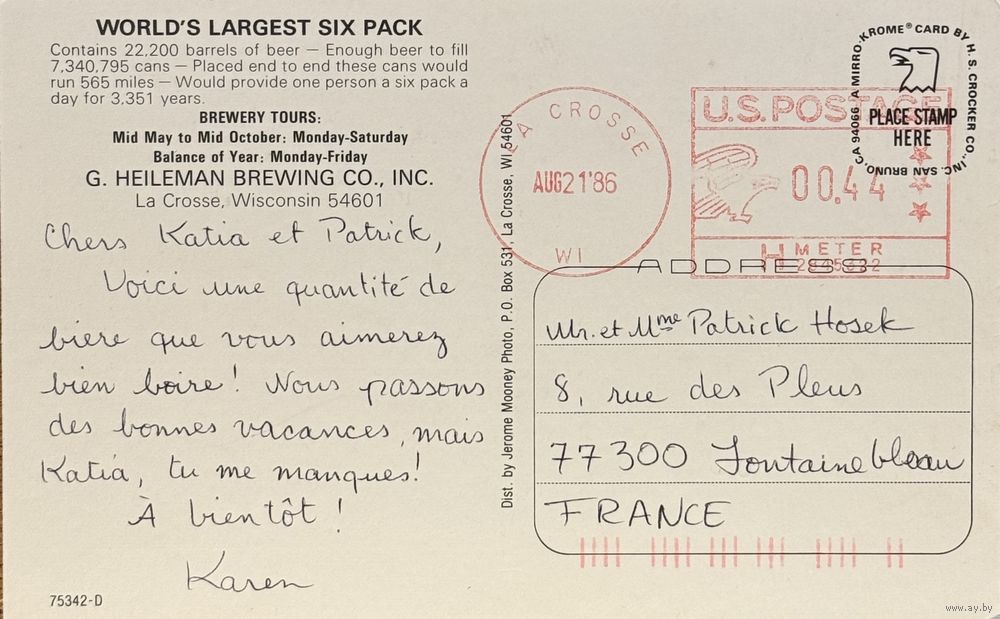 WORLD'S LARGEST SIX PACK
Contains 22,200 barrels of beer — Enough beer to fill
7,340,795 cans — Placed end to end these cans would
run 565 miles — Would provide one person a six pack a
day for 3,351 years.
BREWERY TOURS:
Mid May to Mid October: Monday-Saturday
Balance of Year: Monday-Friday
G. HEILEMAN BREWING CO., INC.
La Crosse, Wisconsin 54601
Chers Katia et Patrick,
Voici une quantité de
bière que vous aimerez
bien boire! Nous passons
des bonnes vacances, mais
Katia, tu me manques!
À bientôt!
Karen
75342-D
Dist. by Jerome Mooney Photo, P.O. Box 531, La Crosse, WI 54601
LA CROSSE
AUG21'86
WI
U.S.POSTAGE
00.44
METER
A MIRRO-KROME® CARD BY H. S. CROCKER CO., INC. SAN BRUNO, CA 94066
PLACE STAMP
HERE
ADDRESS
Mr. et Mme Patrick Hosek
8, rue des Pleus
77300 Fontainebleau
FRANCE
www.ay.by